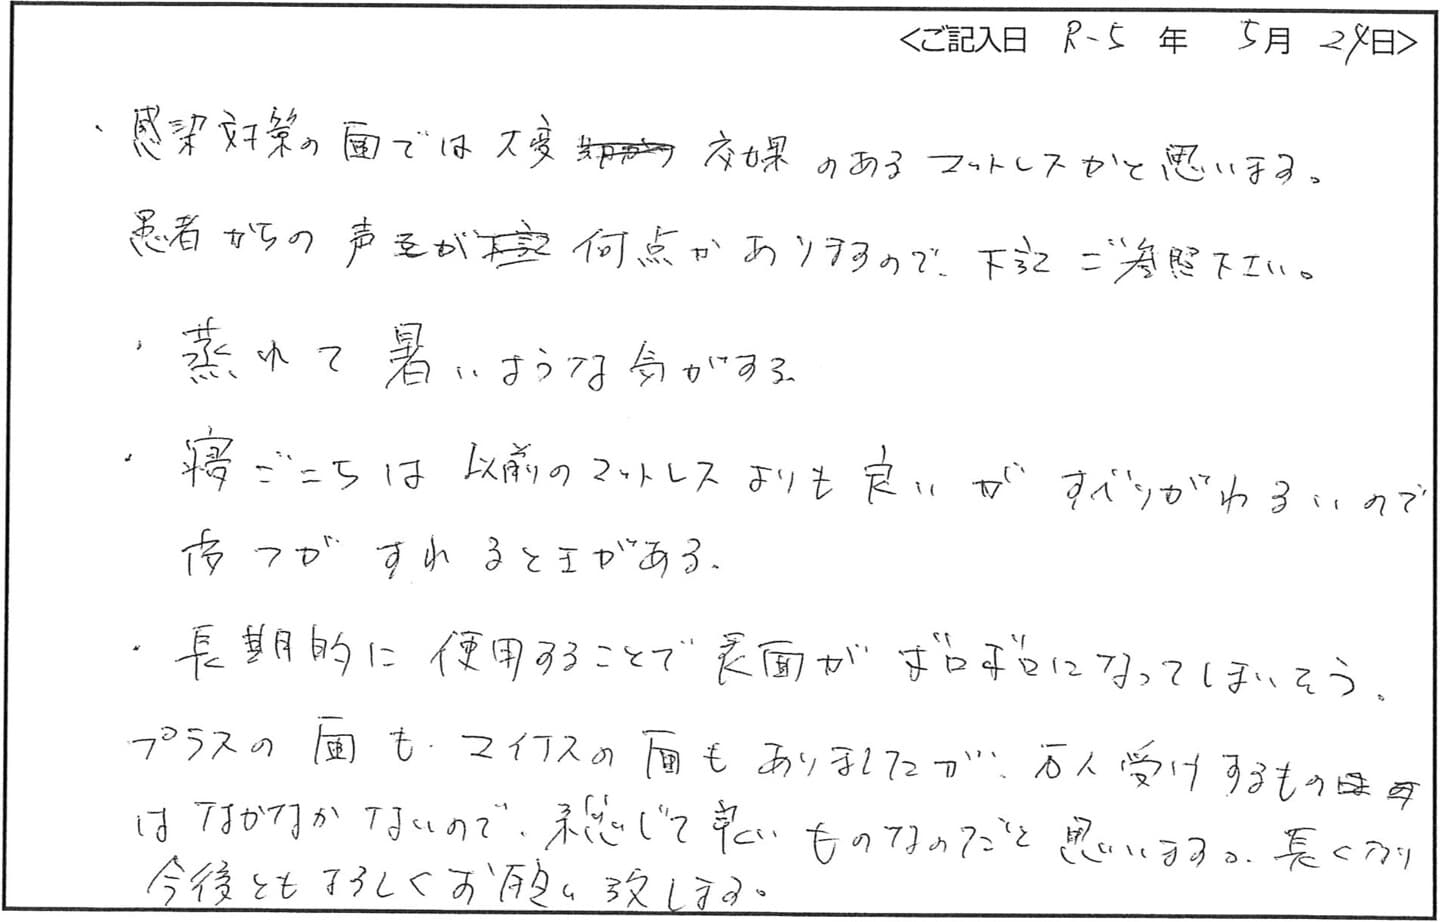 <ご記入日 R-5 年 5月 24日>
・感染対策の面では大変 効果のあるマットレスかと思います。
患者からの声が 何点かありますので、下記ご参照下さい。
・蒸れて暑いような気がする
・寝ごこちは以前のマットレスよりも良いが すべりがわるいので
体つがすれるときがある、
・長期的に使用することで表面がボロボロになってしまいそう。
プラスの面も、マイナスの面もありましたが、万人受けするもの
はなかなかないので、総じて良いものなのだと思います。長くなり
今後ともよろしくお願い致します。